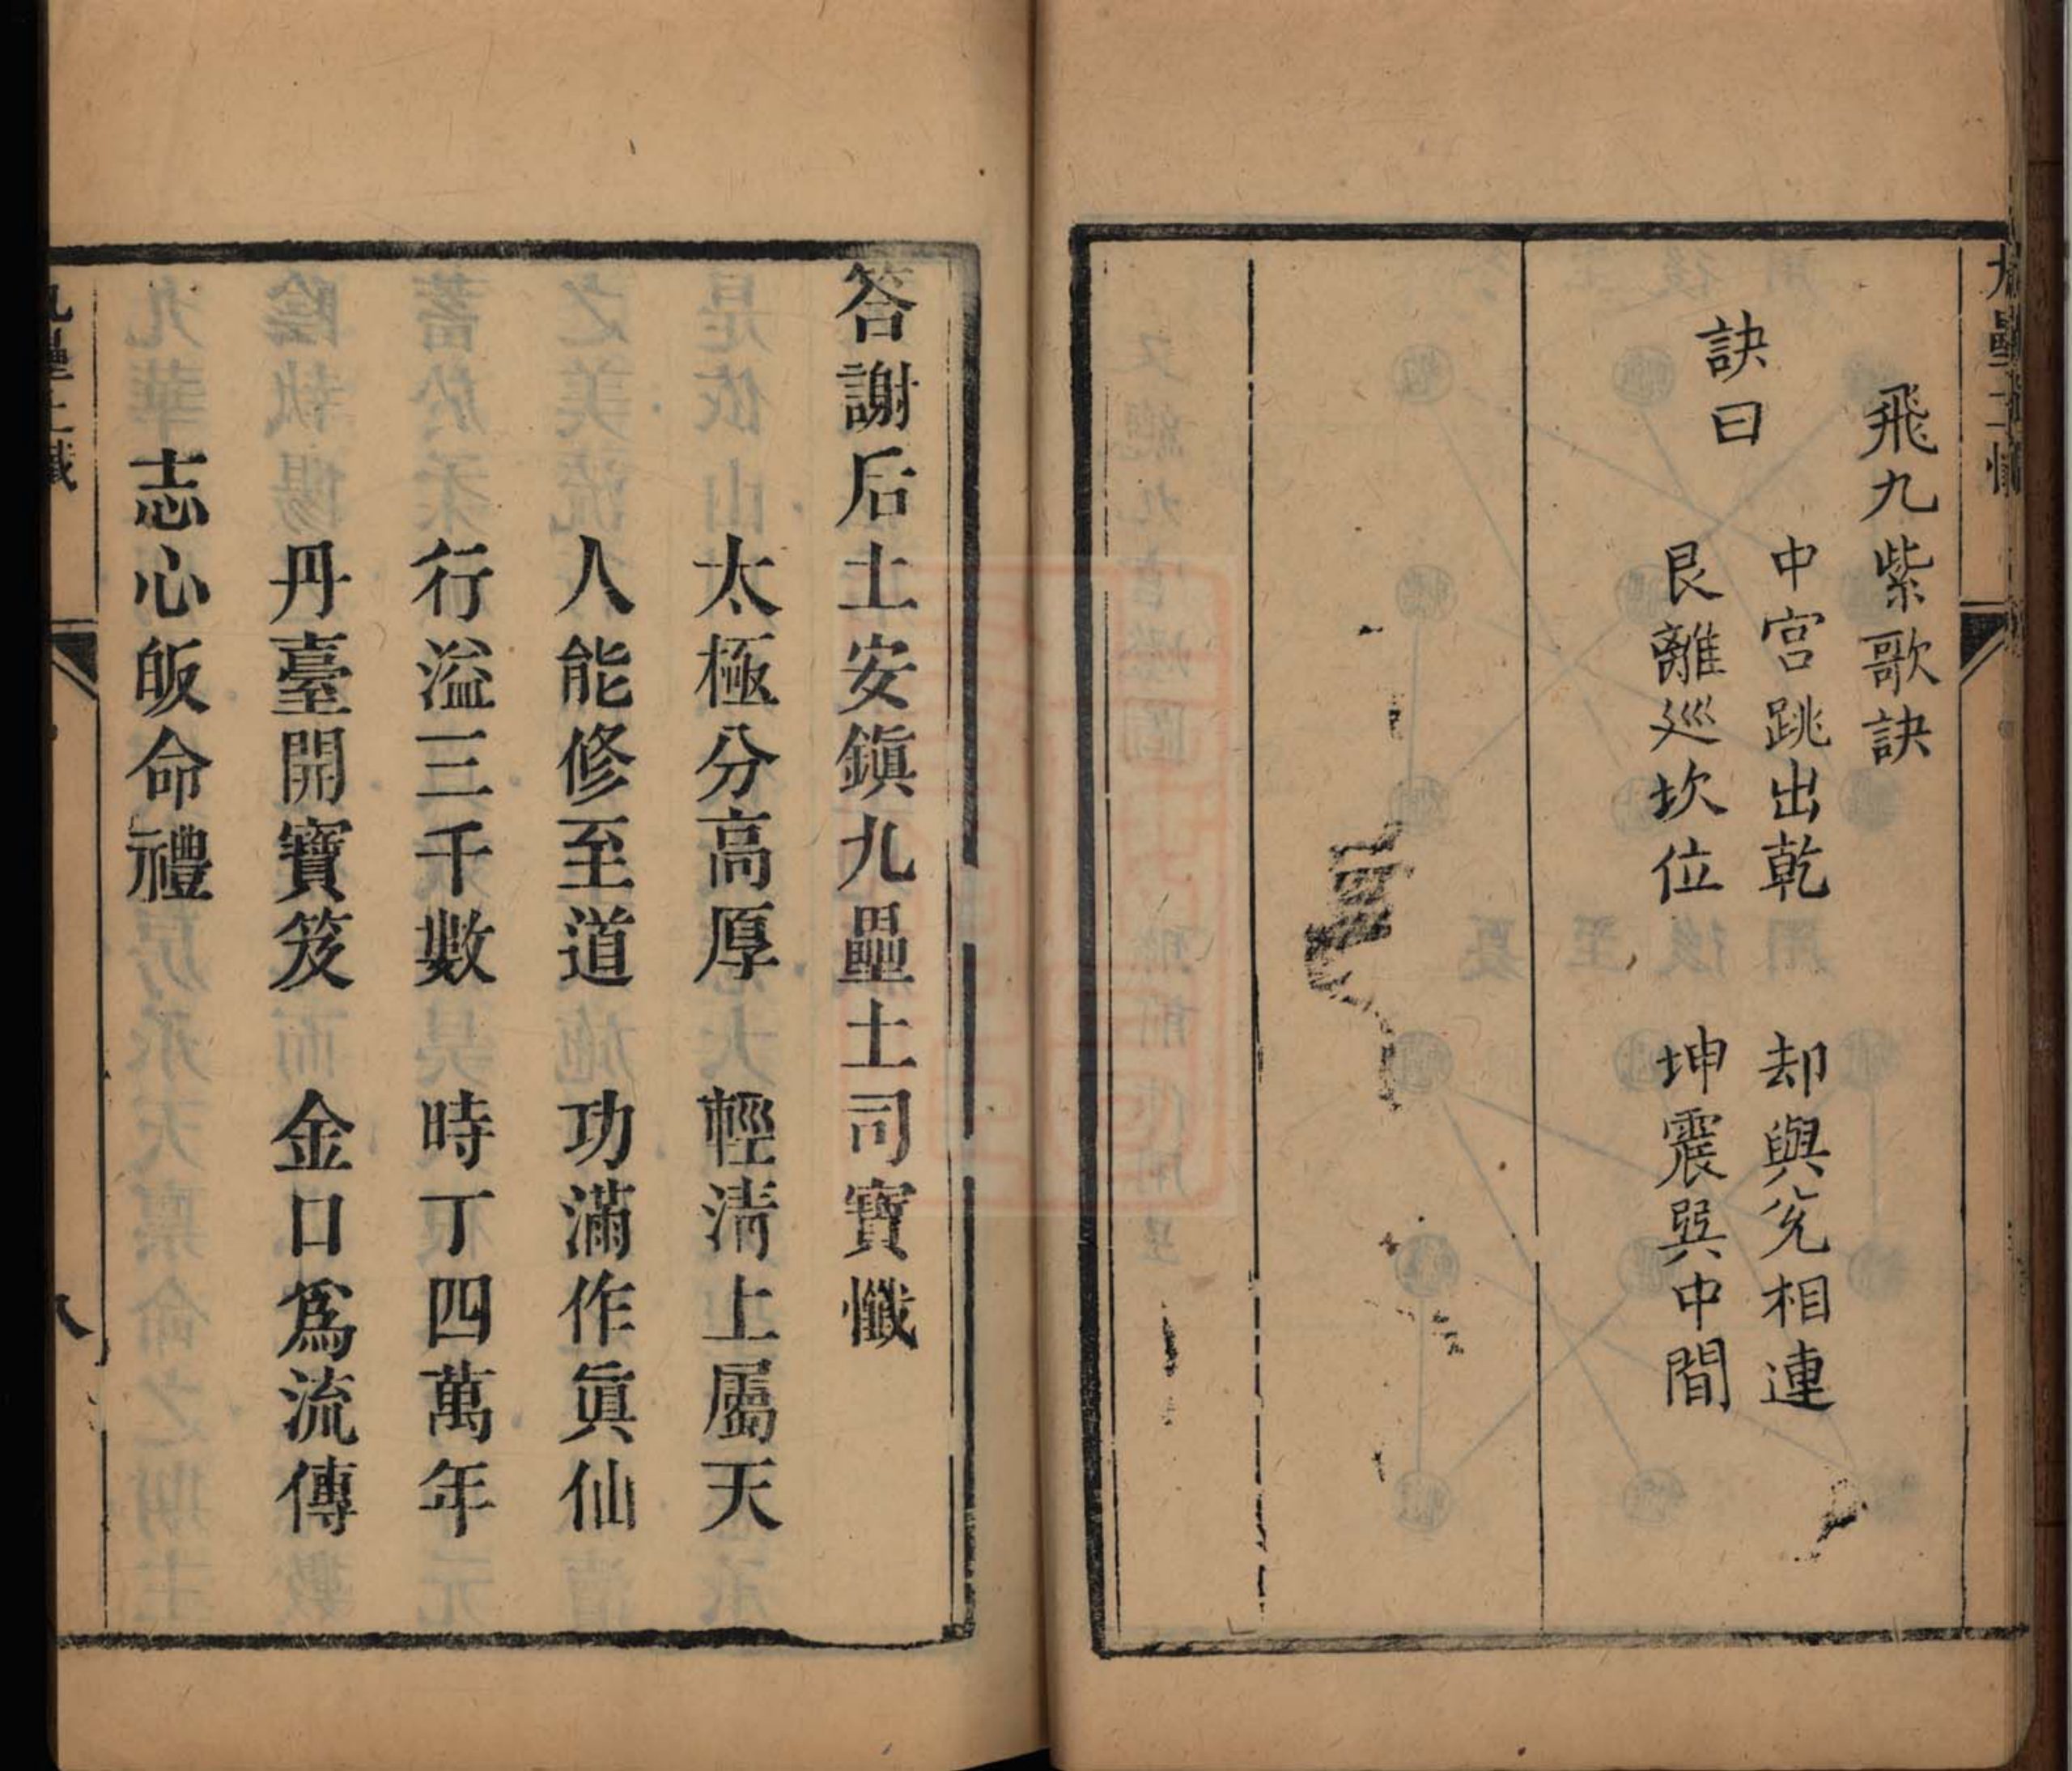 飛九紫歌訣
訣曰
中宮跳出乾　却與兊相連
艮離巡坎位　坤震巽中間
答謝后土安鎭九壘土司寶懺
太極分高厚　輕淸上屬天
人能修至道　功滿作眞仙
行溢三千數　時丁四萬年
丹臺開寶笈　金口爲流傳
志心皈命禮